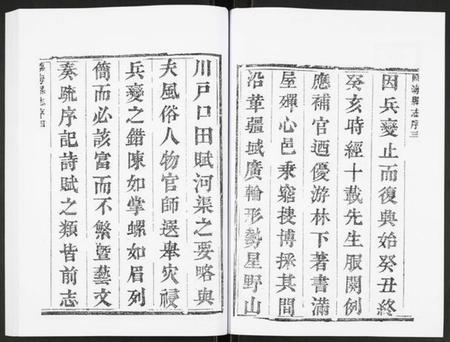 因兵變止而復與始癸丑終
癸亥時經十載先生服闋例
應補官迺優游林下著書滿
屋殫心邑乘窮搜博採其間
沿革疆域廣輪形勢星野山
川戶口田賦河渠之要略與
夫風俗人物官師選舉災祲
兵變之錯陳如掌螺如眉列
簡而必該富而不繁暨藝文
奏疏序記詩賦之類皆前志